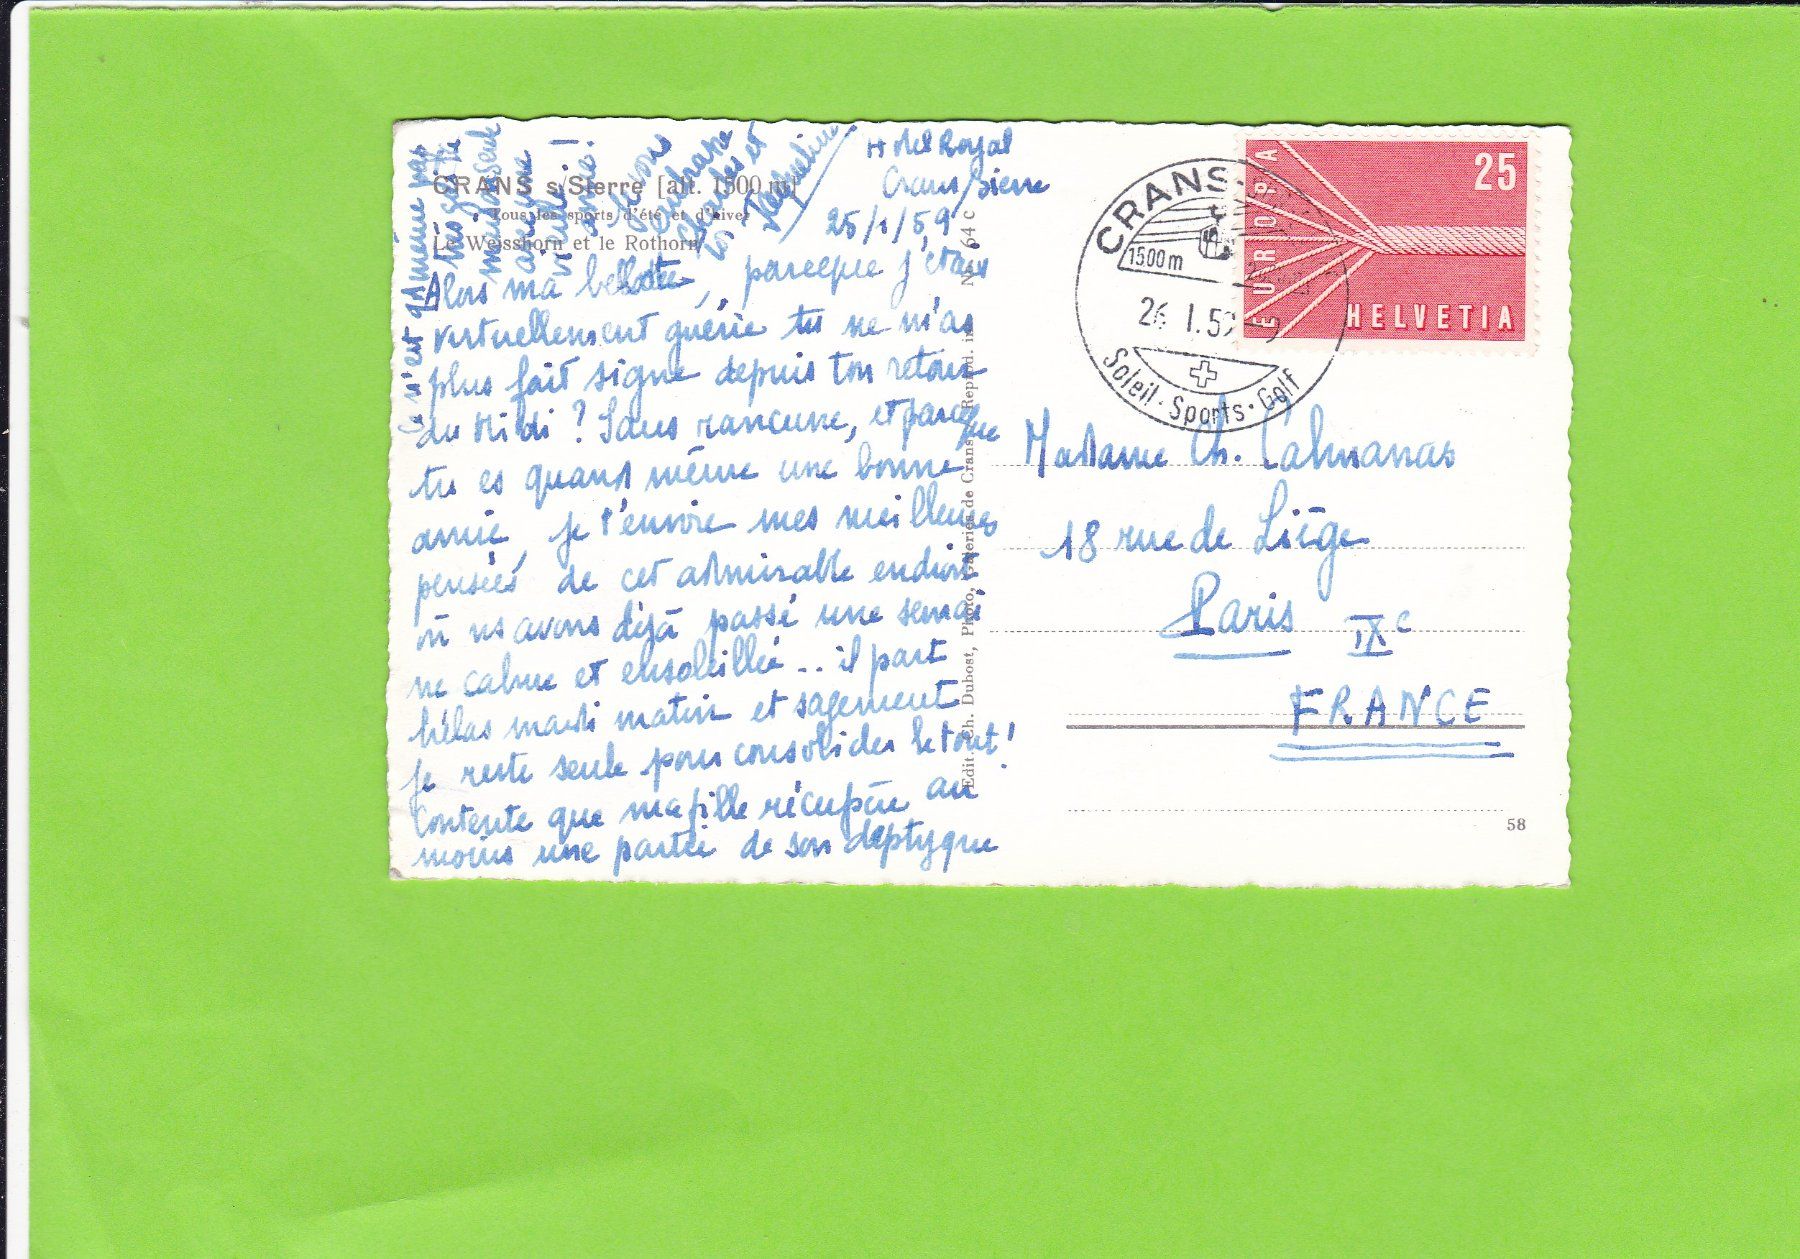 CRANS s/Sierre [alt. 1500 m]
Tous les sports d'été et d'hiver
Le Weisshorn et le Rothorn
Hotel Royal
Crans/Sierre
25/1/59
Alors ma belotte, parceque j'étais
virtuellement guérie tu ne m'as
plus fait signe depuis ton retour
du Midi ? Sans rancune, et parceque
tu es quand même une bonne
amie, je t'envoie mes meilleures
pensées de cet admirable endroit
où ns avons déjà passé une semai
ne calme et ensoleillée.. il part
hélas mardi matin et sagement
je reste seule pour consolider le tout !
Contente que ma fille récupère au
moins une partie de son
Ce n'est
très
seule
amie.
embrasse
Charles et
Jacqueline
Edit. Ch. Dubost, Photo, Galeries de Crans. Reprod. int. No 64 c
CRANS
1500 m
26.1.59-9
Soleil · Sports · Golf
EUROPA
25
HELVETIA
Madame Ch. Calmanas
18 rue de Liège
Paris IXe
FRANCE
58